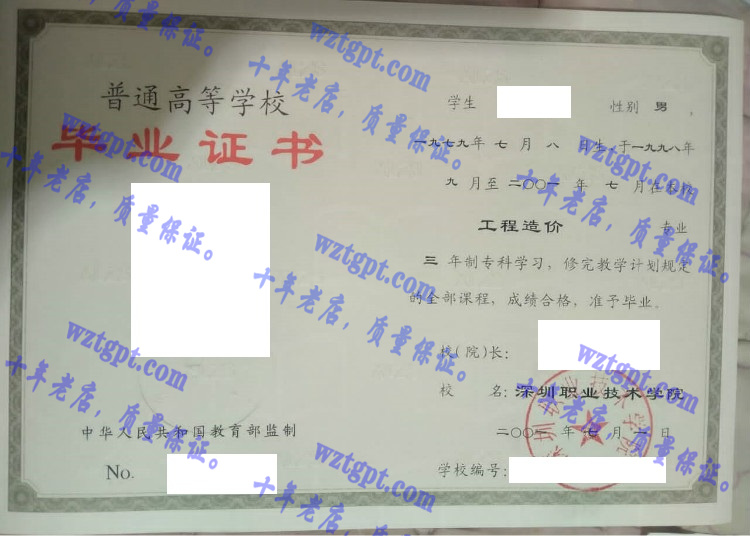 普通高等学校
毕业证书
中华人民共和国教育部监制
No.
学生 性别 男 ,
一九七九年 七 月 八 日生,于一九九八年
九 月至 二〇〇一 年 七 月在本校
工程造价 专业
三 年制专科学习，修完教学计划规定
的全部课程，成绩合格，准予毕业。
校(院)长:
校 名: 深圳职业技术学院
二〇〇一 年 七 月 一 日
学校编号:
wztgpt.com
十年老店，质量保证。
wztgpt.com
十年老店，质量保证。
wztgpt.com
十年老店，质量保证。
wztgpt.com
十年老店，质量保证。
wztgpt.com
十年老店，质量保证。
wztgpt.com
十年老店，质量保证。
wztgpt.com
十年老店，质量保证。